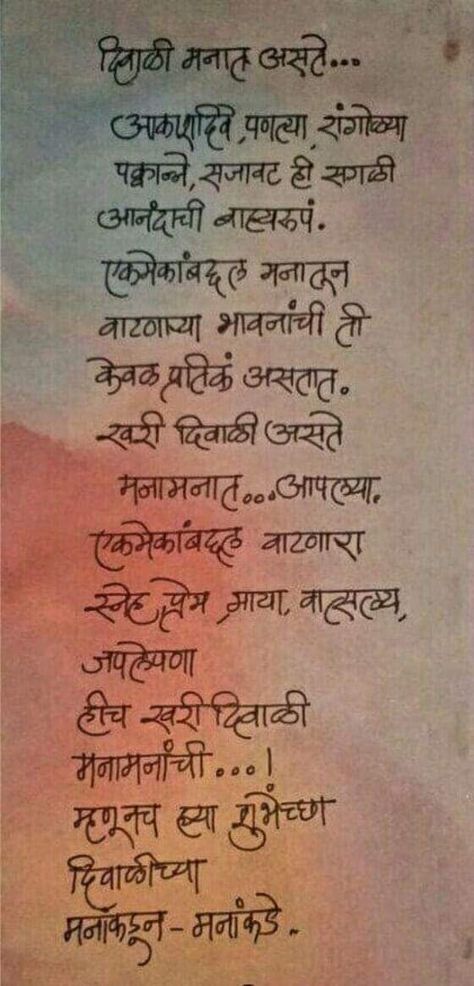 दिवाळी मनात असते...
आकाशदिवे, पणत्या, रांगोळ्या
पक्वान्ने, सजावट ही सगळी
आनंदाची बाह्यरूपं.
एकमेकांबद्दल मनातून
वाटणाऱ्या भावनांची ती
केवळ प्रतिकं असतात.
खरी दिवाळी असते
मनामनात...आपल्या.
एकमेकांबद्दल वाटणारा
स्नेह, प्रेम, माया, वात्सल्य,
जपलेपणा
हीच खरी दिवाळी
मनामनांची...!
म्हणूनच ह्या शुभेच्छा
दिवाळीच्या
मनांकडून - मनांकडे..